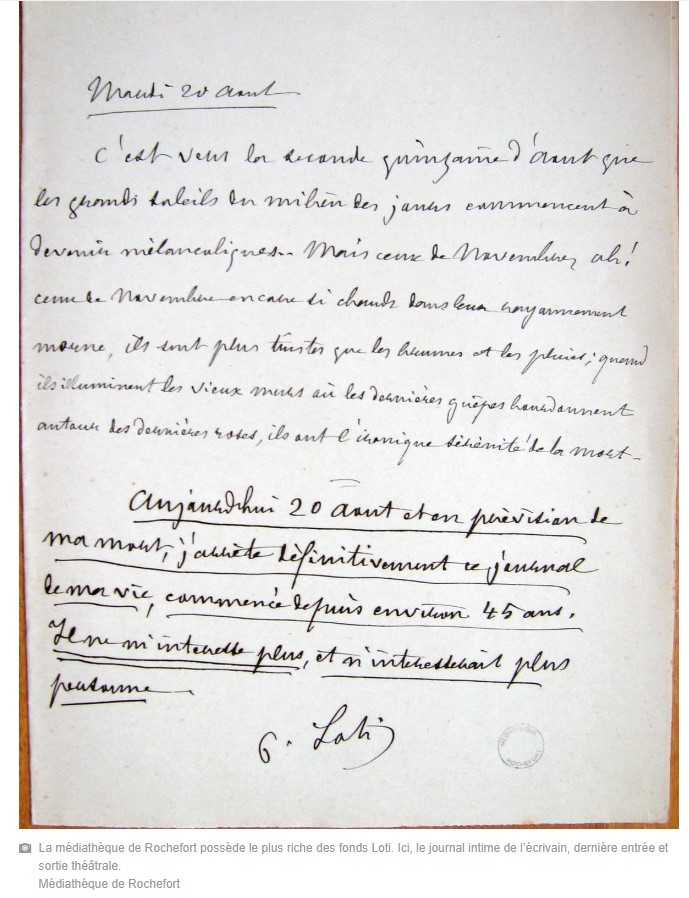 Mardi 20 Aout
C'est vers la seconde quinzaine d'Aout que
les grands soleils du milieu des jours commencent à
devenir mélancoliques.. Mais ceux de Novembre, ah!
ceux de Novembre encore si chauds dans leur rayonnement
morne, ils sont plus tristes que les brumes et les pluies; quand
ils illuminent les vieux murs où les dernières guêpes bourdonnent
autour des dernières roses, ils ont l'ironique sérénité de la mort_
Aujourdhui 20 Aout et en prévision de
ma mort, j'arrête définitivement ce journal
de ma vie, commencé depuis environ 45 ans.
Il ne m'interesse plus, et n'interesserait plus
personne_
P. Loti
ROCHEFORT
La médiathèque de Rochefort possède le plus riche des fonds Loti. Ici, le journal intime de l'écrivain, dernière entrée et
sortie théâtrale.
Médiathèque de Rochefort